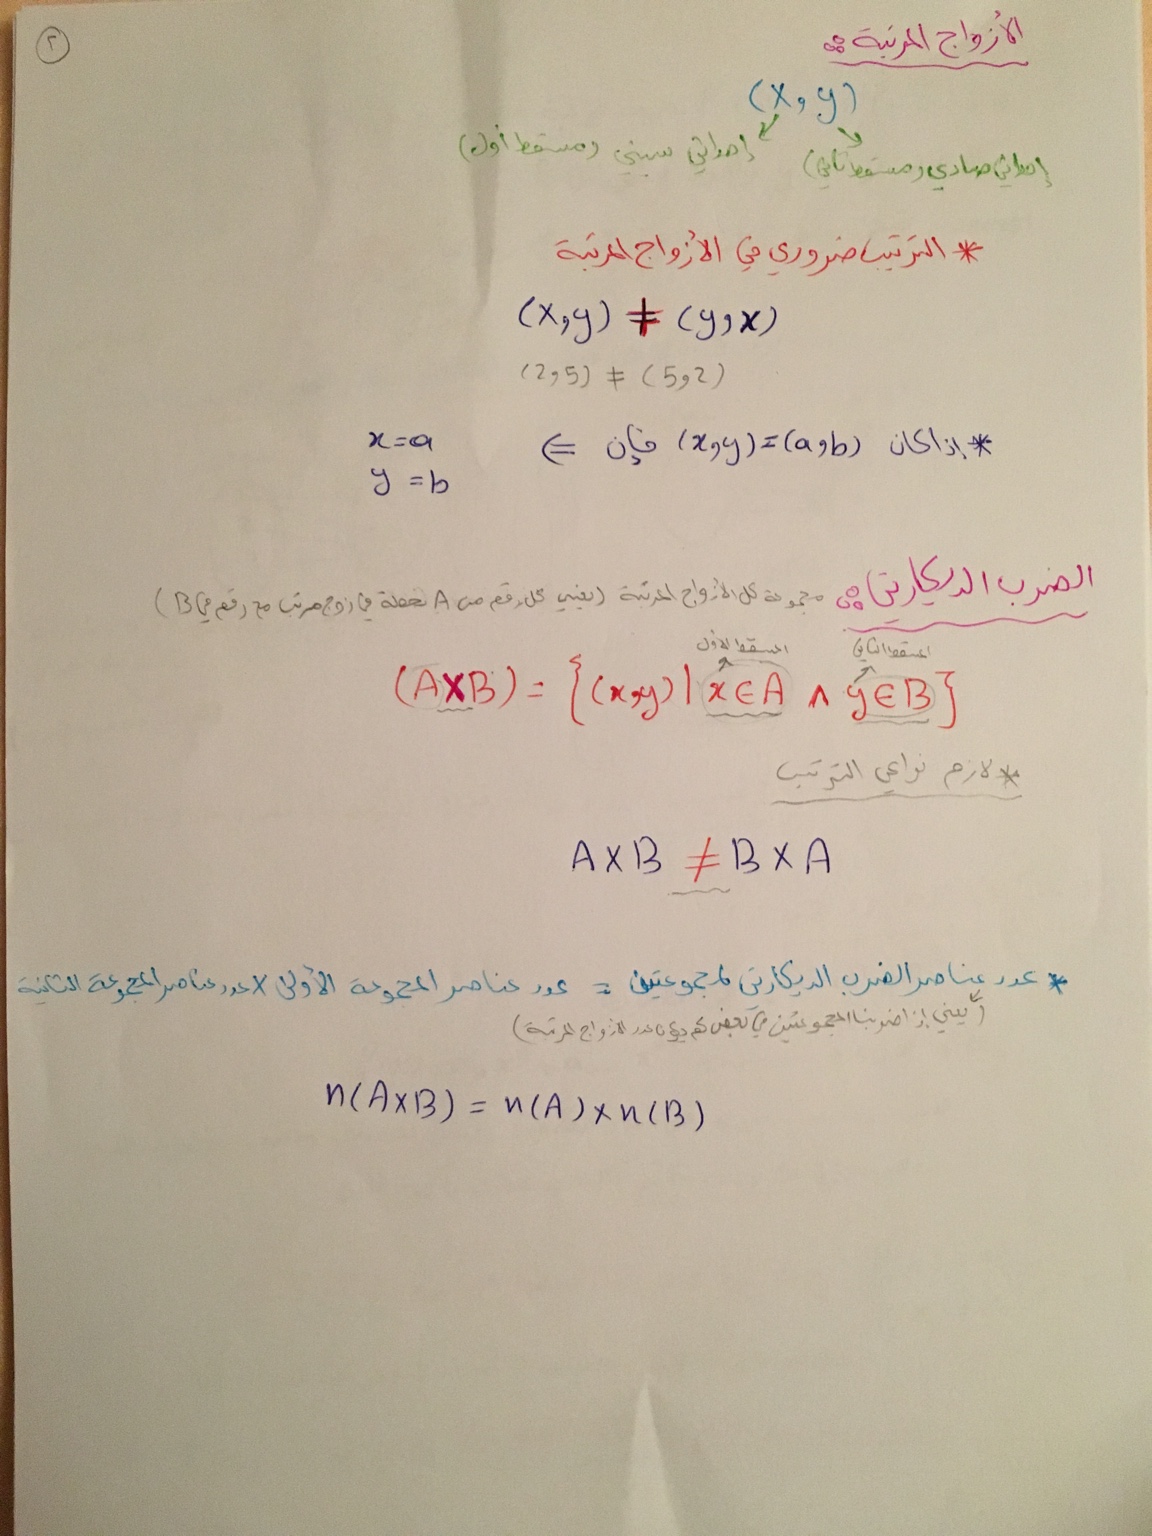 ٢
الأزواج المرتبة :
(x, y)
إحداثي سيني ومسقط أول)
إحداثي صادي ومسقط ثاني)
* الترتيب ضروري في الأزواج المرتبة
(x, y) ≠ (y, x)
(2, 5) ≠ (5, 2)
* إذا كان (x, y) = (a, b) فإن ⇐ x = a
y = b
الضرب الديكارتي : مجموعة كل الأزواج المرتبة (يعني كل رقم من A نحطه في زوج مرتب مع رقم في B)
المسقط الأول المسقط الثاني
(A×B) = {(x, y) | x ∈ A ∧ y ∈ B}
* لازم نراعي الترتيب
A × B ≠ B × A
* عدد عناصر الضرب الديكارتي لمجموعتين = عدد عناصر المجموعة الأولى × عدد عناصر المجموعة الثانية
(يعني إذا ضربنا المجموعتين في بعض كم عدد الأزواج المرتبة)
n(A×B) = n(A) × n(B)